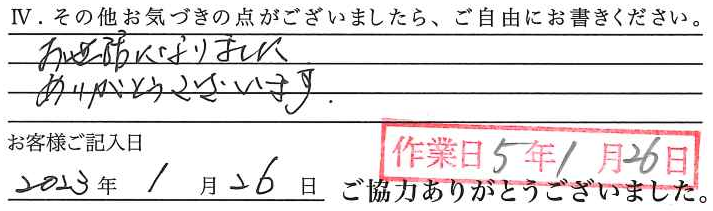 Ⅳ．その他お気づきの点がございましたら、ご自由にお書きください。
お世話になりました
ありがとうございます．
お客様ご記入日
作業日5年1月26日
2023年1月26日
ご協力ありがとうございました。